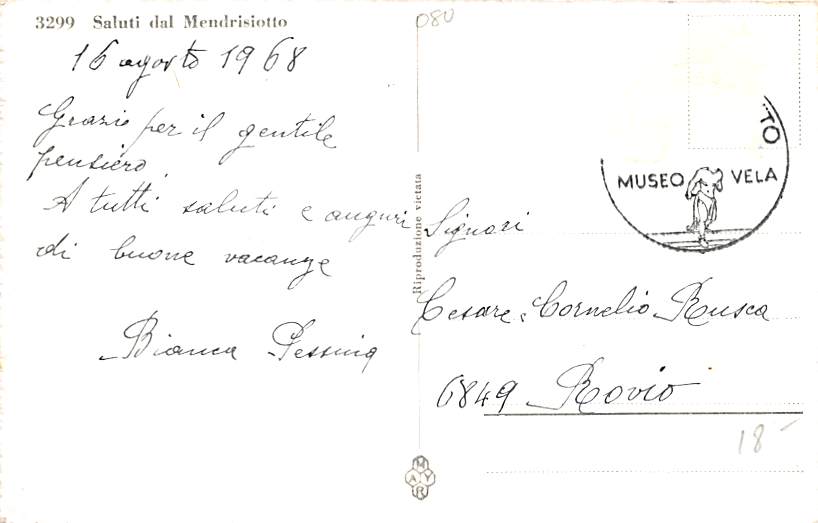 3299 Saluti dal Mendrisiotto
16 agosto 1968
Grazie per il gentile
pensiero.
A tutti saluti e auguri
di buone vacanze
Bianca
Riproduzione vietata
080
TO
MUSEO VELA
Signori
Cesare, Cornelio Rusca
6849 Rovio
18 -
MAYR